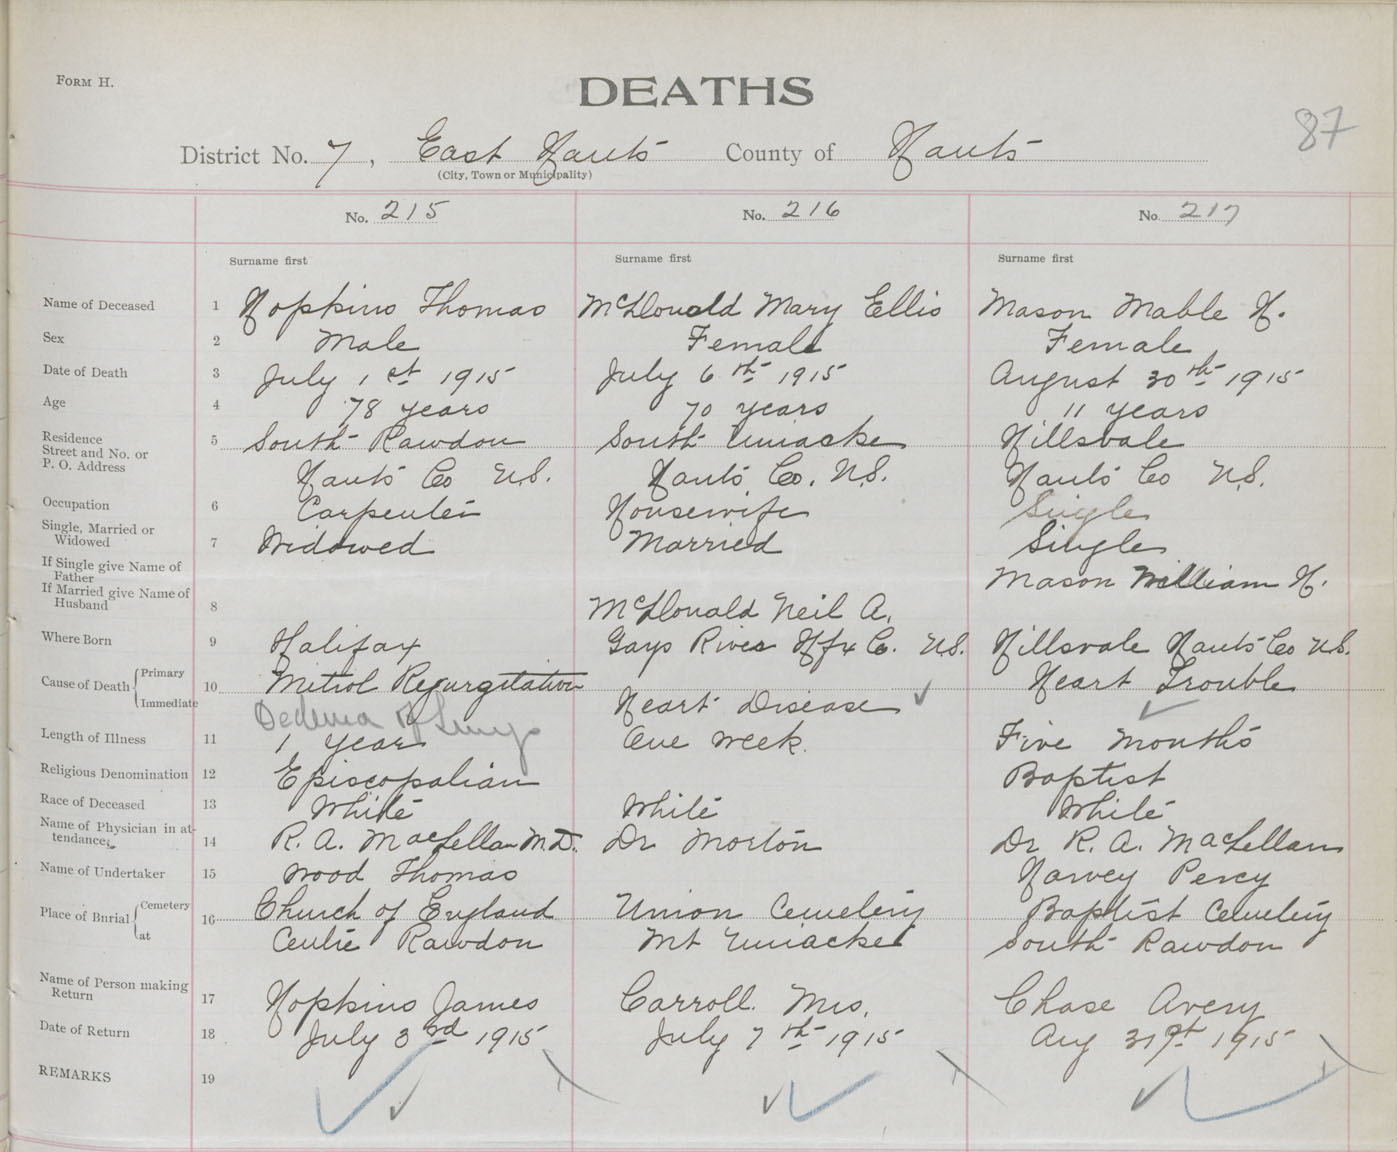 FORM H.
DEATHS
87
District No. 7, East Hants County of Hants
(City, Town or Municipality)
No. 215 No. 216 No. 217
Surname first Surname first Surname first
Name of Deceased 1 Hopkins Thomas McDonald Mary Ellis Mason Mable H.
Sex 2 Male Female Female
Date of Death 3 July 1st 1915 July 6th 1915 August 30th 1915
Age 4 78 years 70 years 11 years
Residence 5 South Rawdon South Uniacke Hillsvale
Street and No. or
P. O. Address Hants Co N.S. Hants Co. N.S. Hants Co N.S.
Occupation 6 Carpenter Housewife Single
Single, Married or
Widowed 7 Widowed Married Single
If Single give Name of
Father Mason William H.
If Married give Name of
Husband 8 McDonald Neil A.
Where Born 9 Halifax Gays River Hfx Co. N.S. Hillsvale Hants Co N.S.
Cause of Death Primary 10 Mitrol Regurgitation Heart Trouble
Immediate Oedema of Lungs Heart Disease
Length of Illness 11 1 year One week. Five Months
Religious Denomination 12 Episcopalian Baptist
Race of Deceased 13 White White White
Name of Physician in at-
tendance 14 R. A. MacLellan M.D. Dr Morton Dr R. A. MacLellan
Name of Undertaker 15 Wood Thomas Harvey Percy
Place of Burial Cemetery 16 Church of England Union Cemetery Baptist Cemetery
at Centre Rawdon Mt Uniacke South Rawdon
Name of Person making
Return 17 Hopkins James Carroll. Mrs. Chase Avery
Date of Return 18 July 3rd 1915 July 7th 1915 Aug 31st 1915
REMARKS 19